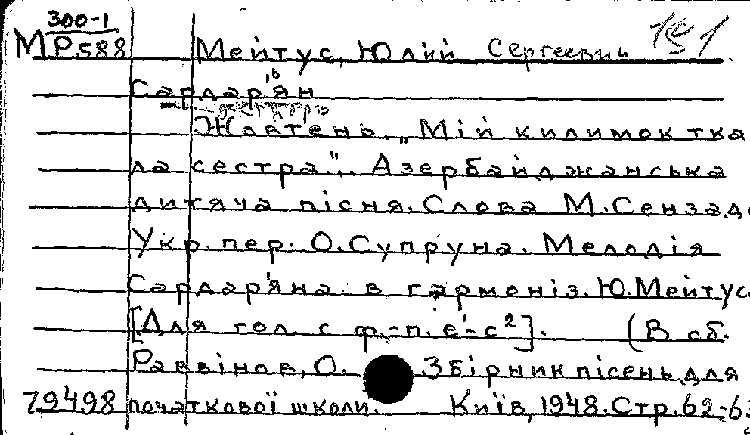 300-1
МР588 Мейтус, Юлій Сергеевич 151
Сардар'ян
Жовтень. „Мій килимок тка
ла сестра". Азербайджанська
дитяча пісня. Слова М. Сензаде
Укр. пер. О. Супруна. Мелодія
Сардар'яна в гармоніз. Ю. Мейтус
[Для гол. с ф.-п. є'-с²]. (В сб.
Раввінов, О. Збірник пісень для
79498 початкової школи. Київ, 1948. Стр. 62-63